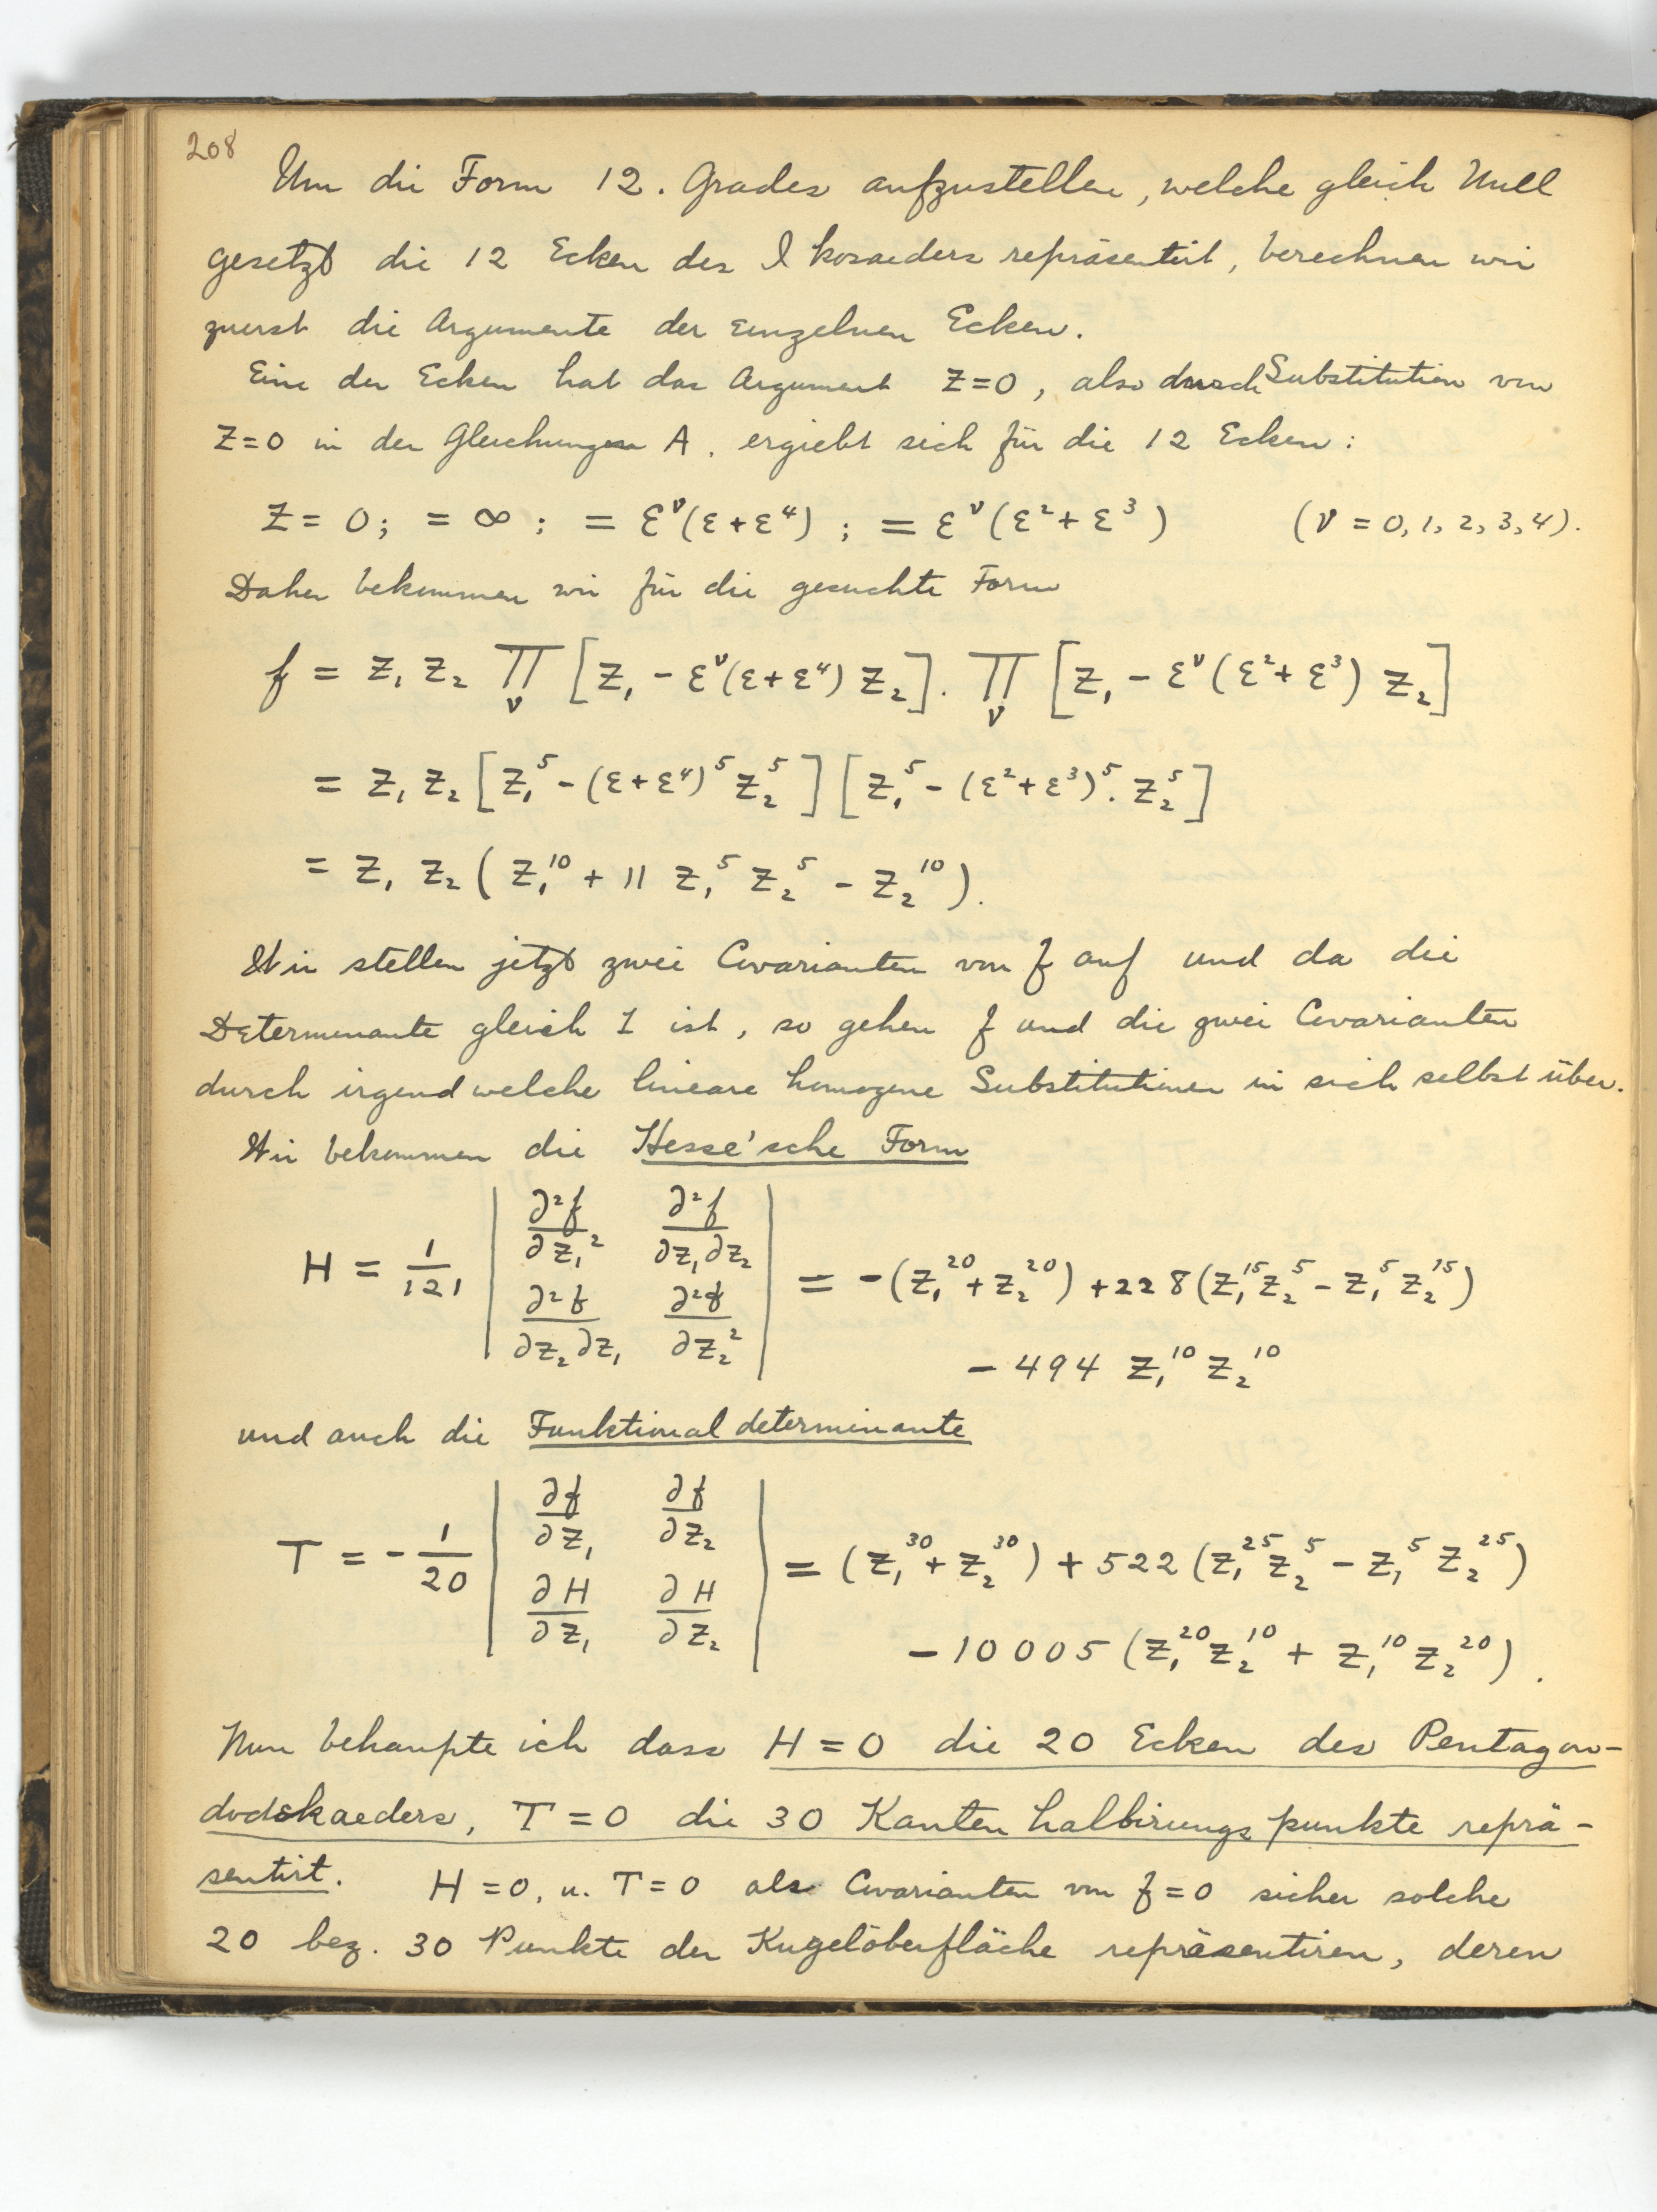 208
Um die Form 12. Grades aufzustellen, welche gleich Null
gesetzt die 12 Ecken des Ikosaeders repräsentirt, berechnen wir
zuerst die Argumente der einzelnen Ecken.
Eine der Ecken hat das Argument z=0, also durch Substitution von
z=0 in den Gleichungen A. ergiebt sich für die 12 Ecken:
z = 0; = ∞; = ε^ν(ε+ε⁴); = ε^ν(ε²+ε³) (ν = 0,1,2,3,4).
Daher bekommen wir für die gesuchte Form
f = z₁ z₂ ∏_ν [z₁ - ε^ν(ε+ε⁴) z₂]. ∏_ν [z₁ - ε^ν(ε²+ε³) z₂]
= z₁ z₂ [z₁⁵ - (ε+ε⁴)⁵ z₂⁵] [z₁⁵ - (ε²+ε³)⁵. z₂⁵]
= z₁ z₂ (z₁¹⁰ + 11 z₁⁵ z₂⁵ - z₂¹⁰).
Wir stellen jetzt zwei Covarianten von f auf und da die
Determinante gleich 1 ist, so gehen f und die zwei Covarianten
durch irgend welche lineare homogene Substitutionen in sich selbst über.
Wir bekommen die Hesse'sche Form
H = 1/121 | ∂²f/∂z₁² ∂²f/∂z₁∂z₂ |
| ∂²f/∂z₂∂z₁ ∂²f/∂z₂² | = -(z₁²⁰+z₂²⁰) + 228(z₁¹⁵z₂⁵ - z₁⁵z₂¹⁵)
- 494 z₁¹⁰ z₂¹⁰
und auch die Funktionaldeterminante
T = - 1/20 | ∂f/∂z₁ ∂f/∂z₂ |
| ∂H/∂z₁ ∂H/∂z₂ | = (z₁³⁰ + z₂³⁰) + 522(z₁²⁵z₂⁵ - z₁⁵z₂²⁵)
- 10005 (z₁²⁰z₂¹⁰ + z₁¹⁰z₂²⁰).
Nun behaupte ich dass H=0 die 20 Ecken des Pentagon-
dodekaeders, T=0 die 30 Kantenhalbirungspunkte reprä-
sentirt. H=0, u. T=0 als Covarianten von f=0 sicher solche
20 bez. 30 Punkte der Kugeloberfläche repräsentiren, deren